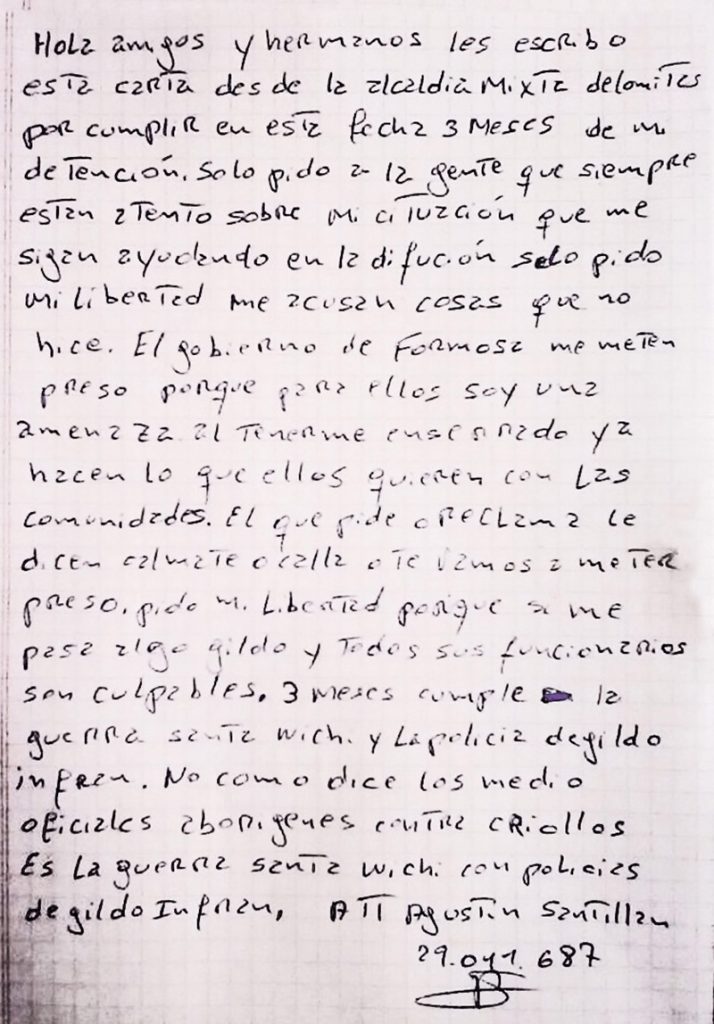 Hola amigos y hermanos les escribo
esta carta desde la alcaldia Mixta delomitas
por cumplir en esta fecha 3 Meses de mi
detención. Solo pido a la gente que siempre
estan atento sobre mi cituación que me
sigan ayudando en la difución solo pido
mi libertad me acusan cosas que no
hice. El gobierno de Formosa me meten
preso porque para ellos soy una
amenaza al tenerme enserrado ya
hacen lo que ellos quieren con Las
comunidades. El que pide o RecLama le
dicen calmate o calla o te vamos a meter
preso. pido mi Libertad porque si me
pasa algo gildo y Todos sus funcionarios
son culpables. 3 meses cumple la
guerra santa wichi y La policia degildo
infran. No como dice los medio
oficiales aborigenes contra CRiollos
Es La guerra santa wichi con policias
de gildo Infran, ATT Agustin Santillan
29.041.687